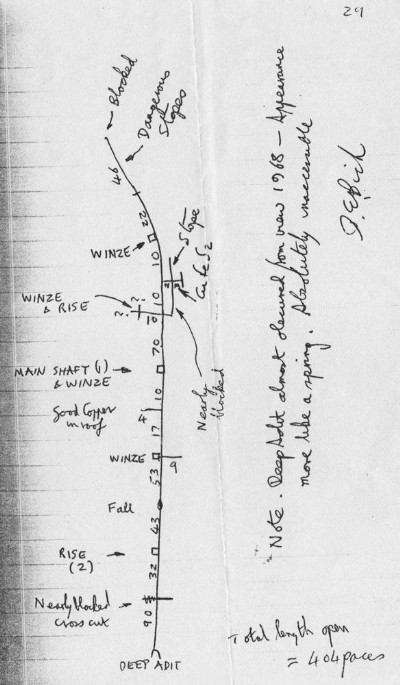 29
Blocked
Dangerous
Stopes
46
22
WINZE
10
Stope
CuFeS2
WINZE
& RISE
?
?
10
10
2
3
70
MAIN SHAFT (1)
& WINZE
10
Nearly
blocked
Good Copper
in roof
4
17
WINZE
9
53
Fall
43
RISE
(2)
32
Nearly blocked
cross cut
90
DEEP ADIT
Note. Deep Adit almost obscured from view 1968 – Appearance
more like a spring. Absolutely inaccessible
Total length open
= 404 paces